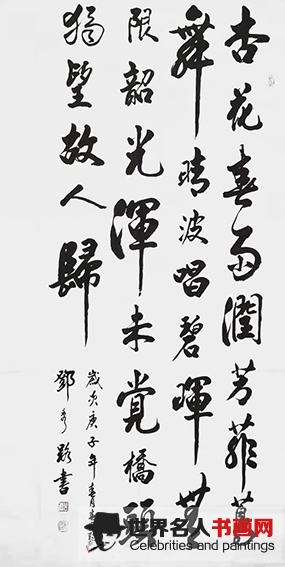 杏花春雨潤芳菲
舞晴波唱碧暉無
限韶光渾未覺橋頭
獨望故人歸
歲次庚子年
鄧書
世界名人书画网
Celebrities and paintings